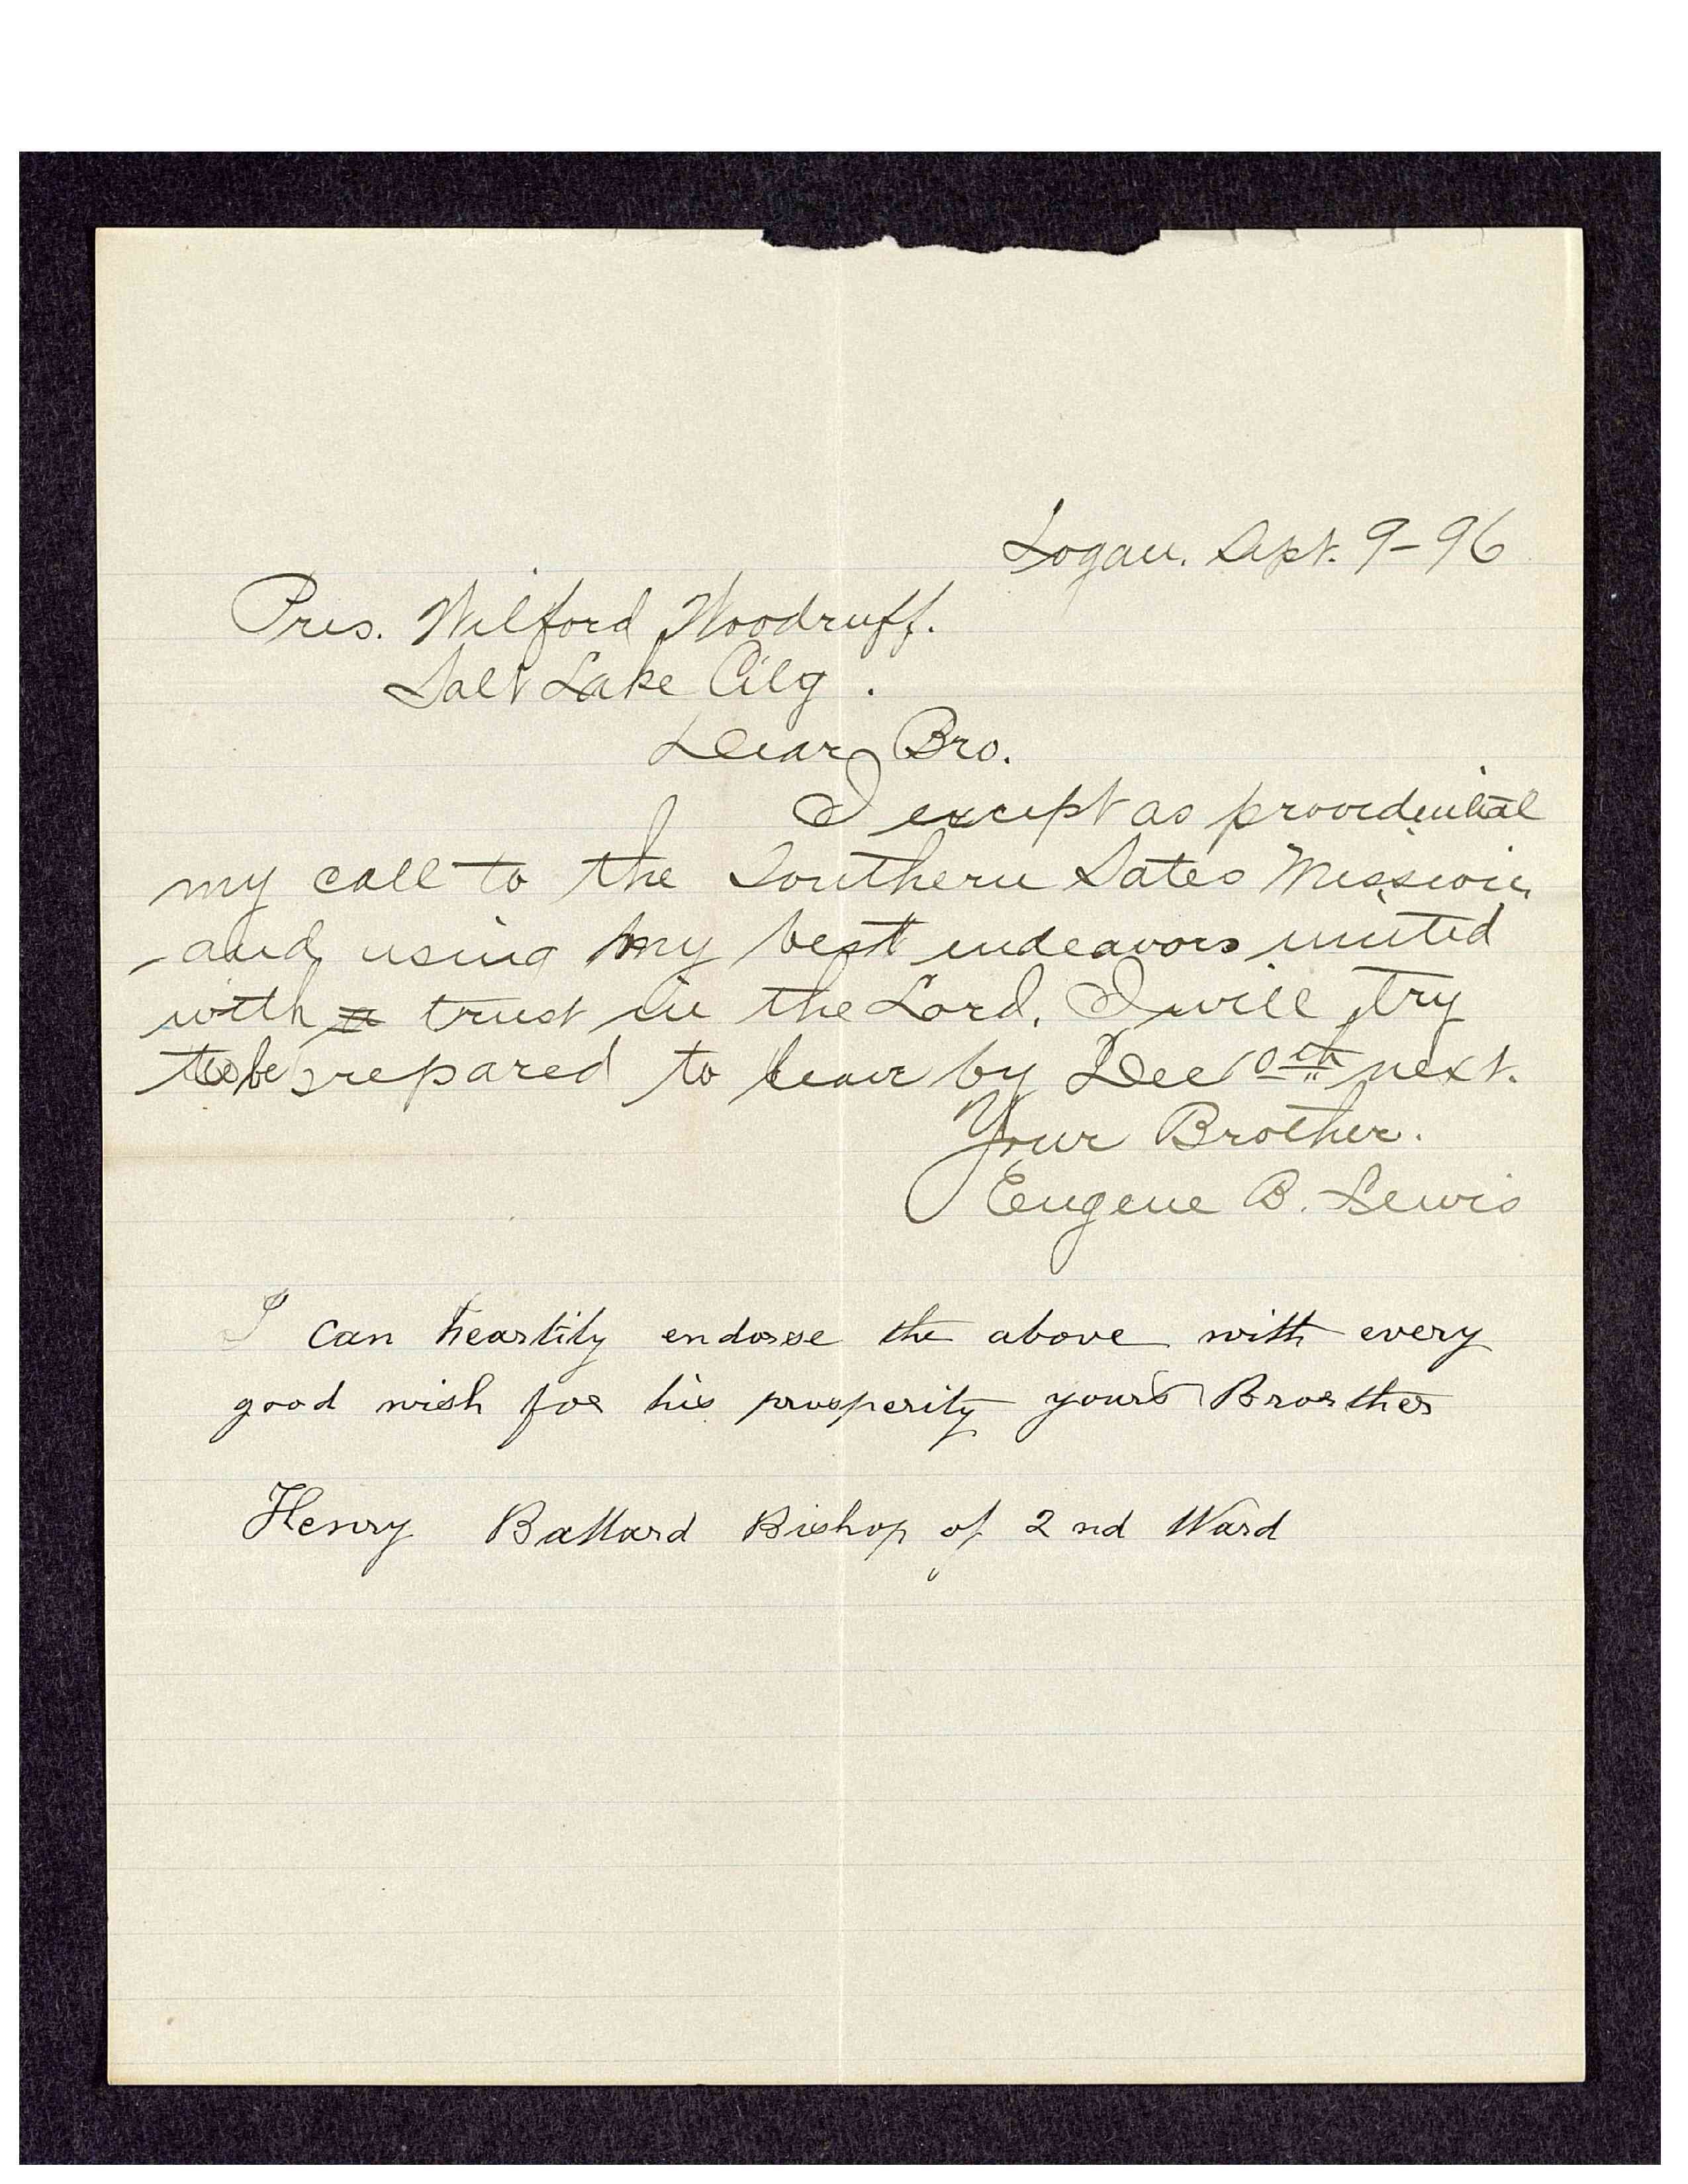 Logan. Sept. 9-96
Pres. Wilford Woodruff.
Salt Lake City.
Dear Bro.
I except as providential
my call to the Southern Sates Mission,
and using my best endeavors united
with a trust in the Lord, I will try
to be prepared to leave by Dec 10th next.
Your Brother.
Eugene B. Lewis
I can heartily endorse the above with every
good wish for his prosperity yours Brother
Henry Ballard Bishop of 2nd Ward